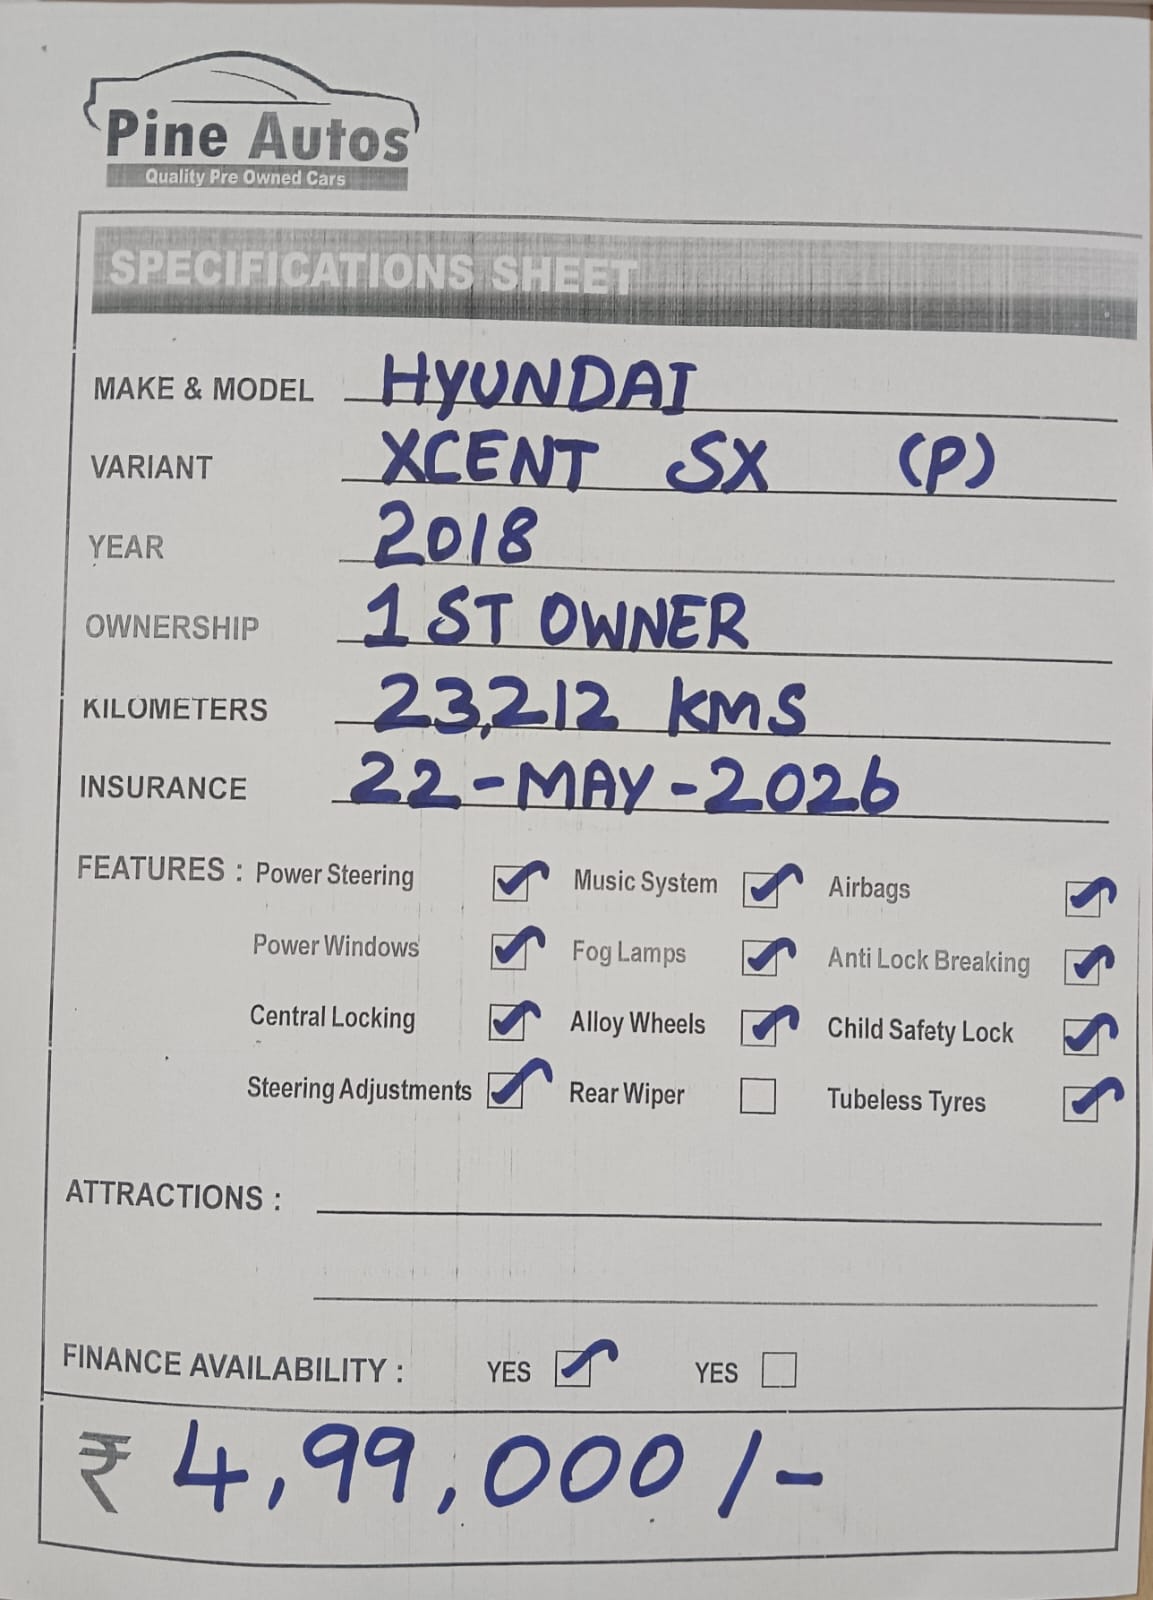 Pine Autos
Quality Pre Owned Cars
SPECIFICATIONS SHEET
MAKE & MODEL HYUNDAI
VARIANT XCENT SX (P)
YEAR 2018
OWNERSHIP 1 ST OWNER
KILOMETERS 23,212 KMS
INSURANCE 22-MAY-2026
FEATURES : Power Steering Music System Airbags
Power Windows Fog Lamps Anti Lock Breaking
Central Locking Alloy Wheels Child Safety Lock
Steering Adjustments Rear Wiper Tubeless Tyres
ATTRACTIONS :
FINANCE AVAILABILITY : YES YES
₹ 4,99,000/-